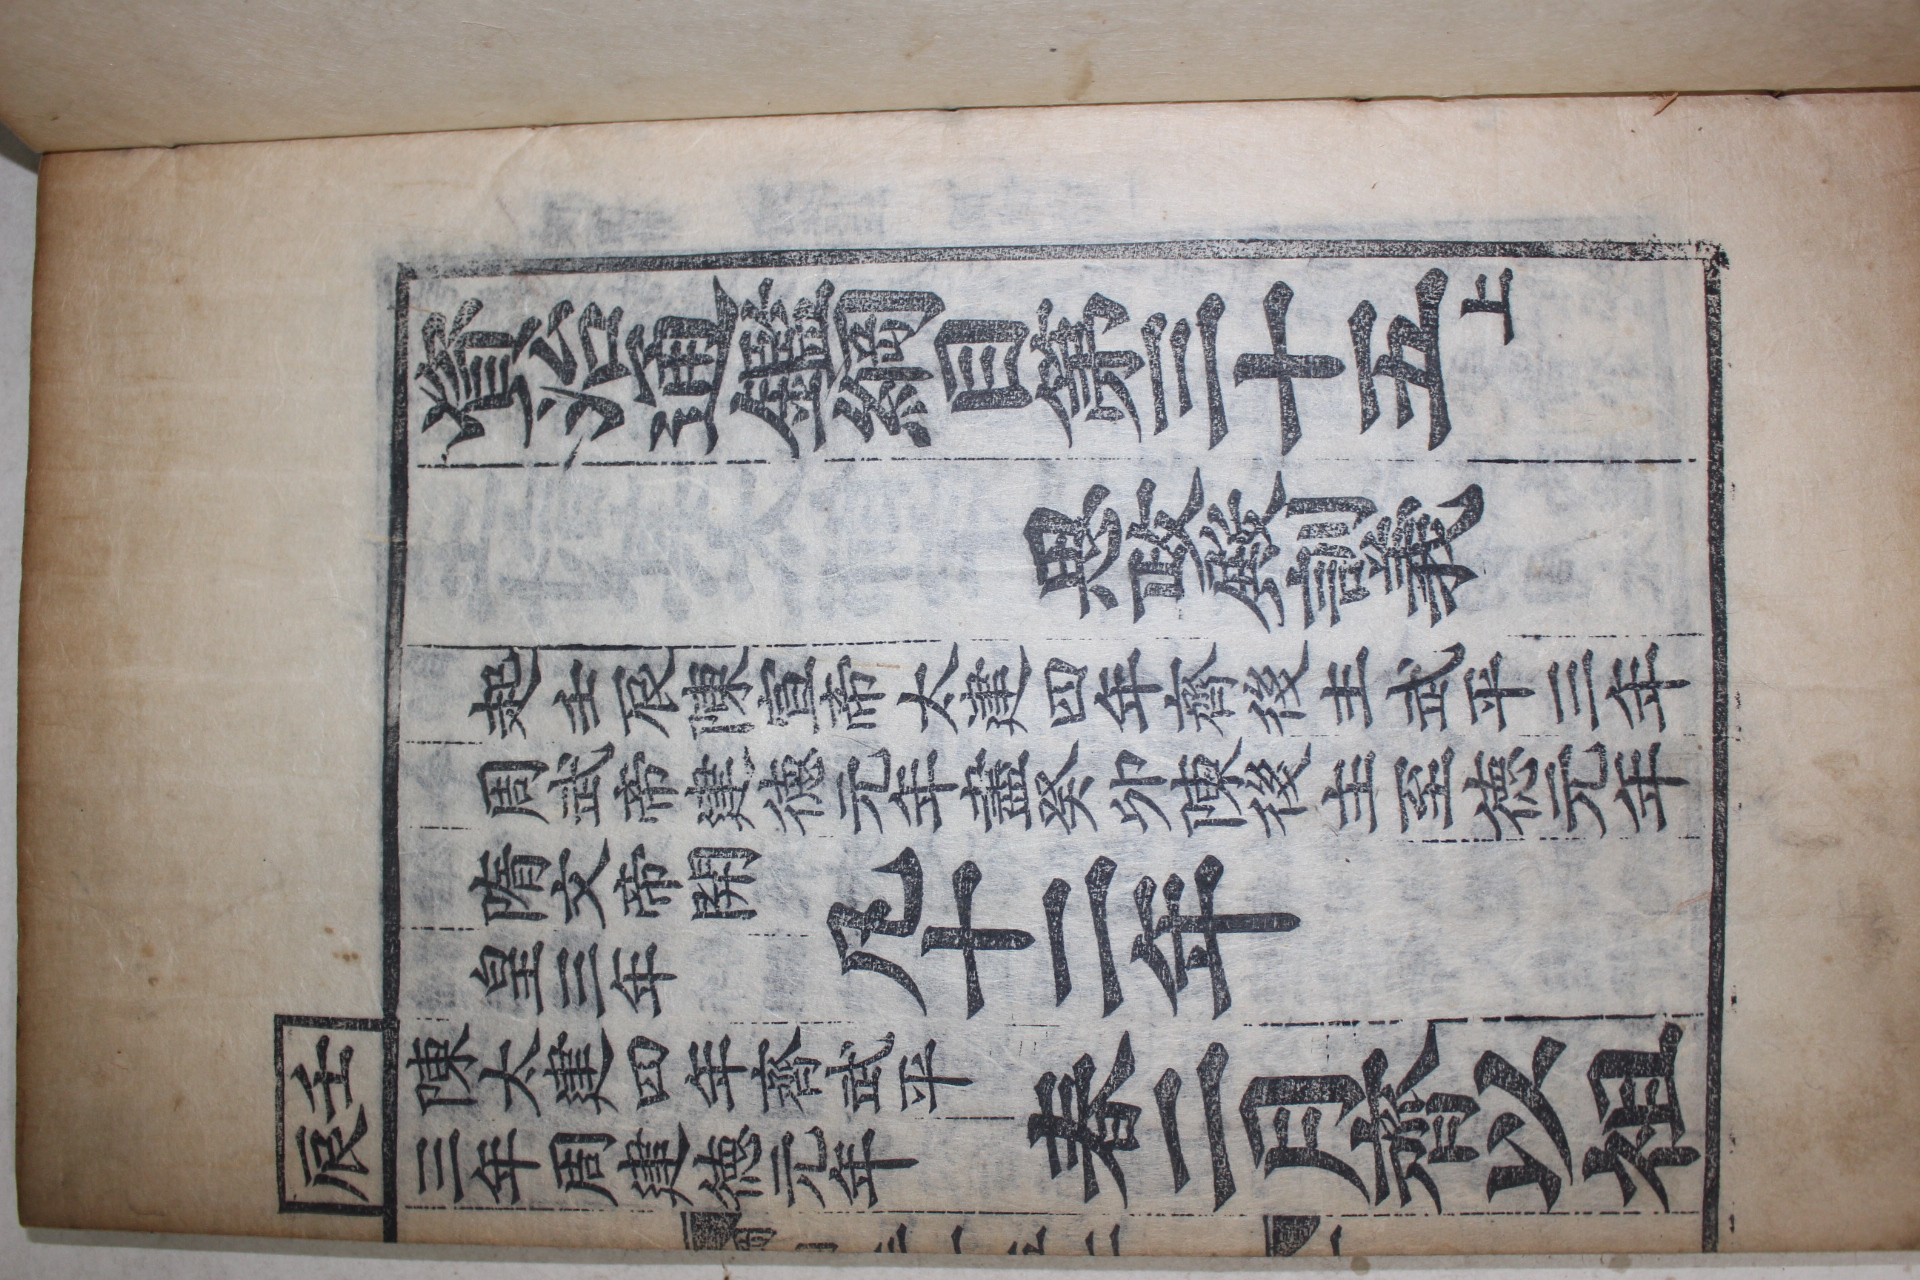 資治通鑑綱目第三十五上
思政殿訓義
起壬辰陳宣帝太建四年齊後主武平三年
周武帝建德元年盡癸卯陳後主至德元年
隋文帝開
皇三年
凡十二年
壬辰
陳太建四年齊武平
三年周建德元年
春二月齊以祖